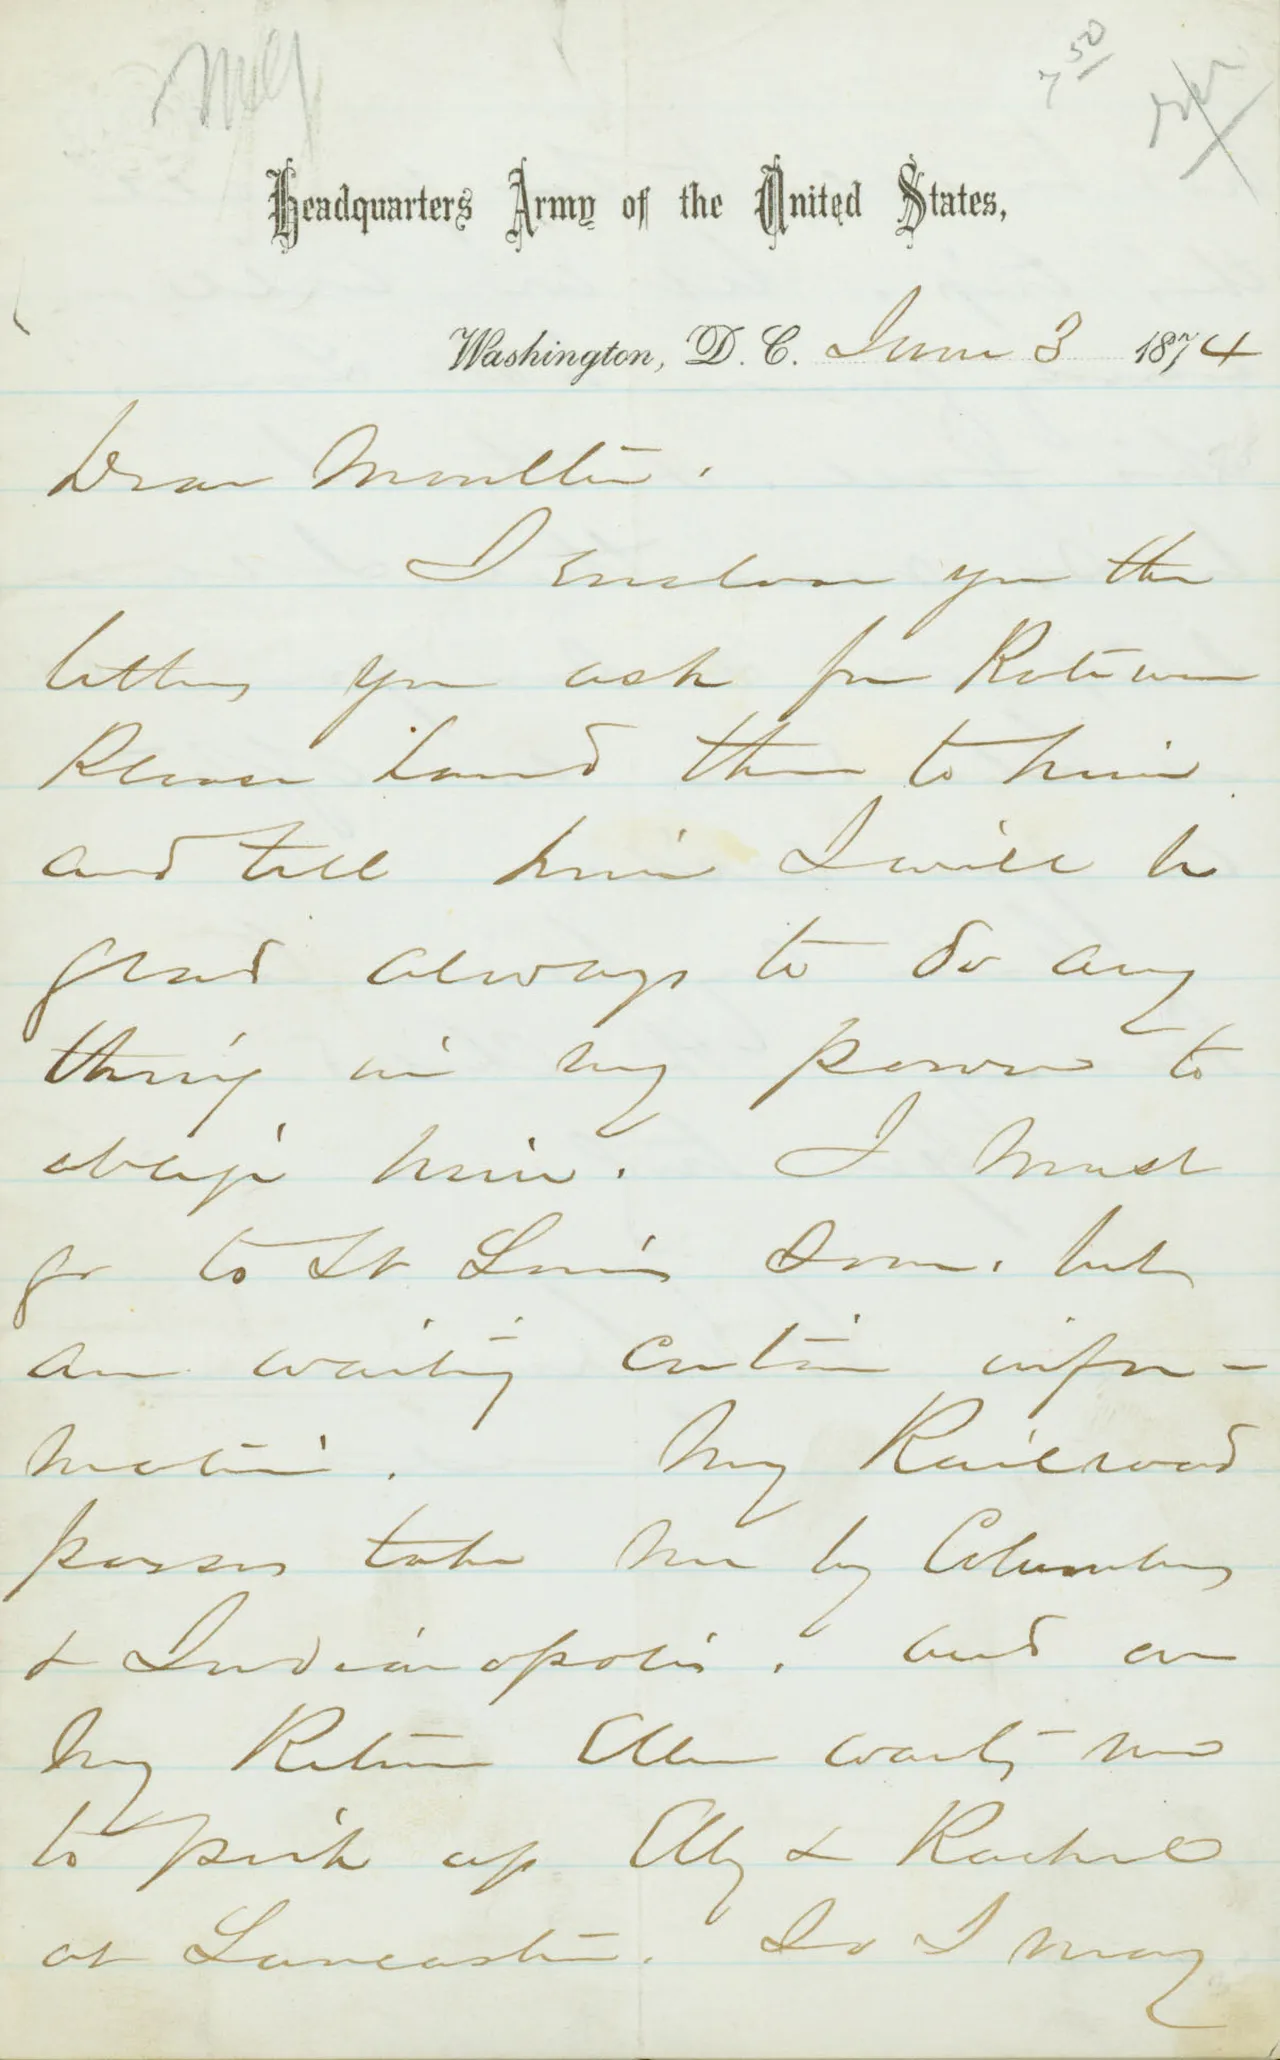 7 50
Headquarters Army of the United States,
Washington, D. C. June 3 1874
Dear Moulton.
I enclose you the
letters you ask for
Please hand them to him
and tell him I will be
glad always to do any
thing in my power to
oblige him. I must
go to St Louis soon, but
am waiting certain infor-
mation. My Railroad
passes take me by Columbus
& Indianapolis, and on
my Return Ellen wants me
to pick up Elly & Rachel
at Lancaster. So I may